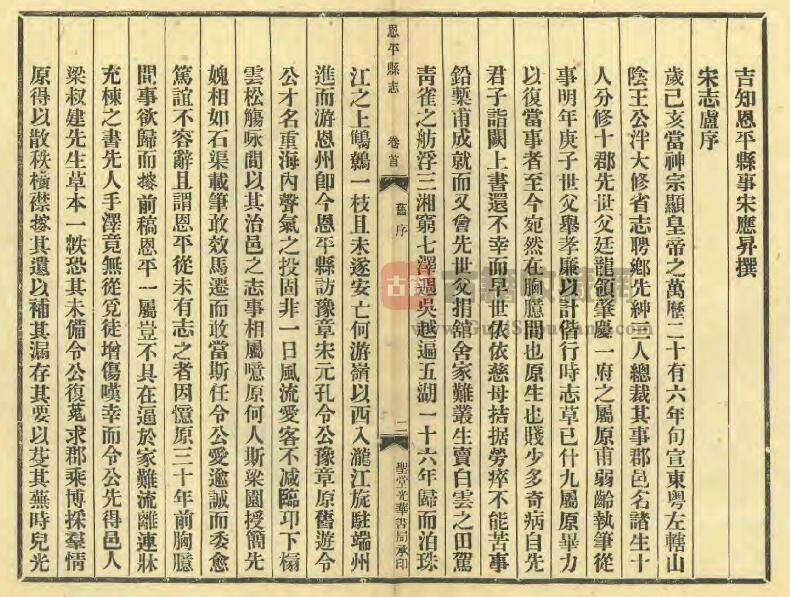 吉知恩平縣事宋應昇撰
宋志盧序
歲己亥當神宗顯皇帝之萬曆二十有六年旬宣東粤左轄山
陰王公泮大修省志聘鄉先紳三人總裁其事郡邑名諸生十
人分修十郡先世父廷龍領肇慶一府之屬原甫弱齡執筆從
事明年庚子世父舉孝廉以計偕行時志草已什九屬原畢力
以復當事者至今宛然在胸臆間也原生也賤少多奇病自先
君子詣闕上書還不幸而早世依依慈母拮据勞瘁不能苦事
鉛槧甫成就而又會先世父捐舘舍家難叢生賣白雲之田駕
靑雀之舫浮三湘窮七澤過吳越遍五湖一十六年歸而泊珠
恩平縣志
卷首
舊序
二
聖堂光華書局承印
江之上鷦鷯一枝且未遂安亡何游嶺以西入瀧江旋駐端州
進而游恩州卽今恩平縣訪豫章宋元孔令公豫章原舊遊令
公才名重海內聲氣之投固非一日風流愛客不减臨卭下榻
雲松觴咏間以其治邑之志事相屬噫原何人斯梁園授簡光
媿相如石渠載筆敢效馬遷而敢當斯任令公愛逾誠而委愈
篤誼不容辭且謂恩平從未有志之者因憶原三十年前胸臆
間事欲歸而搜前稿恩平一屬豈不具在逼於家難流離連牀
充棟之書先人手澤竟無從覓徒增傷嘆幸而令公先得邑人
梁叔建先生草本一帙恐其未備令公復蒐求郡乘博採羣情
原得以散秩橫襟搜其遺以補其漏存其要以芟其蕪時兒光
古籍
www.GujiShuguan.com